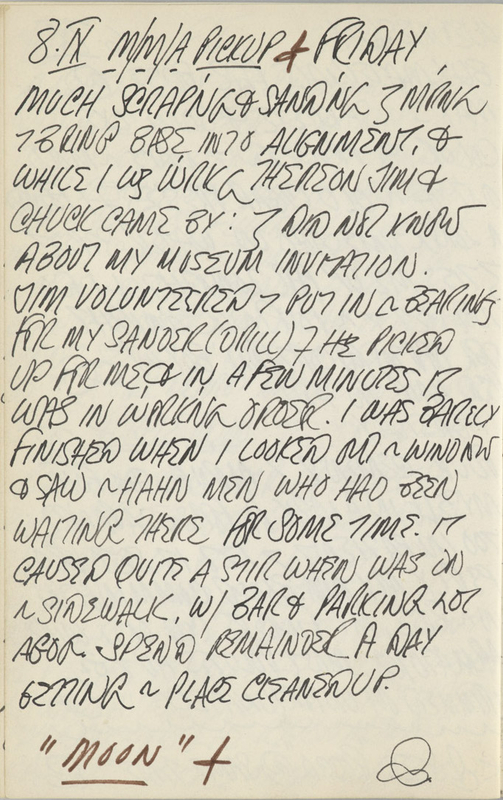 8·IX M/M/A PICKUP & FRIDAY
MUCH SCRAPING & SANDING
BRING BASE INTO ALIGNMENT, &
WHILE I WS WORKG THEREON JIM &
CHUCK CAME BY: DID NOT KNOW
ABOUT MY MUSEUM INVITATION.
JIM VOLUNTEERED PUT IN ~ BEARING
FOR MY SANDER (DRILL) HE PICKED
UP FOR ME, & IN A FEW MINUTES IT
WAS IN WORKNG ORDER. I WAS BARELY
FINISHED WHEN I LOOKED OUT ~ WINDOW
& SAW ~ HAHN MEN WHO HAD BEEN
WAITING THERE FOR SOME TIME. IT
CAUSED QUITE A STIR WHEN WAS ON
~ SIDEWALK, W/ BAR & PARKING LOT
SPEND REMAINDER A DAY
GETTING ~ PLACE CLEANED UP.
"MOON" +